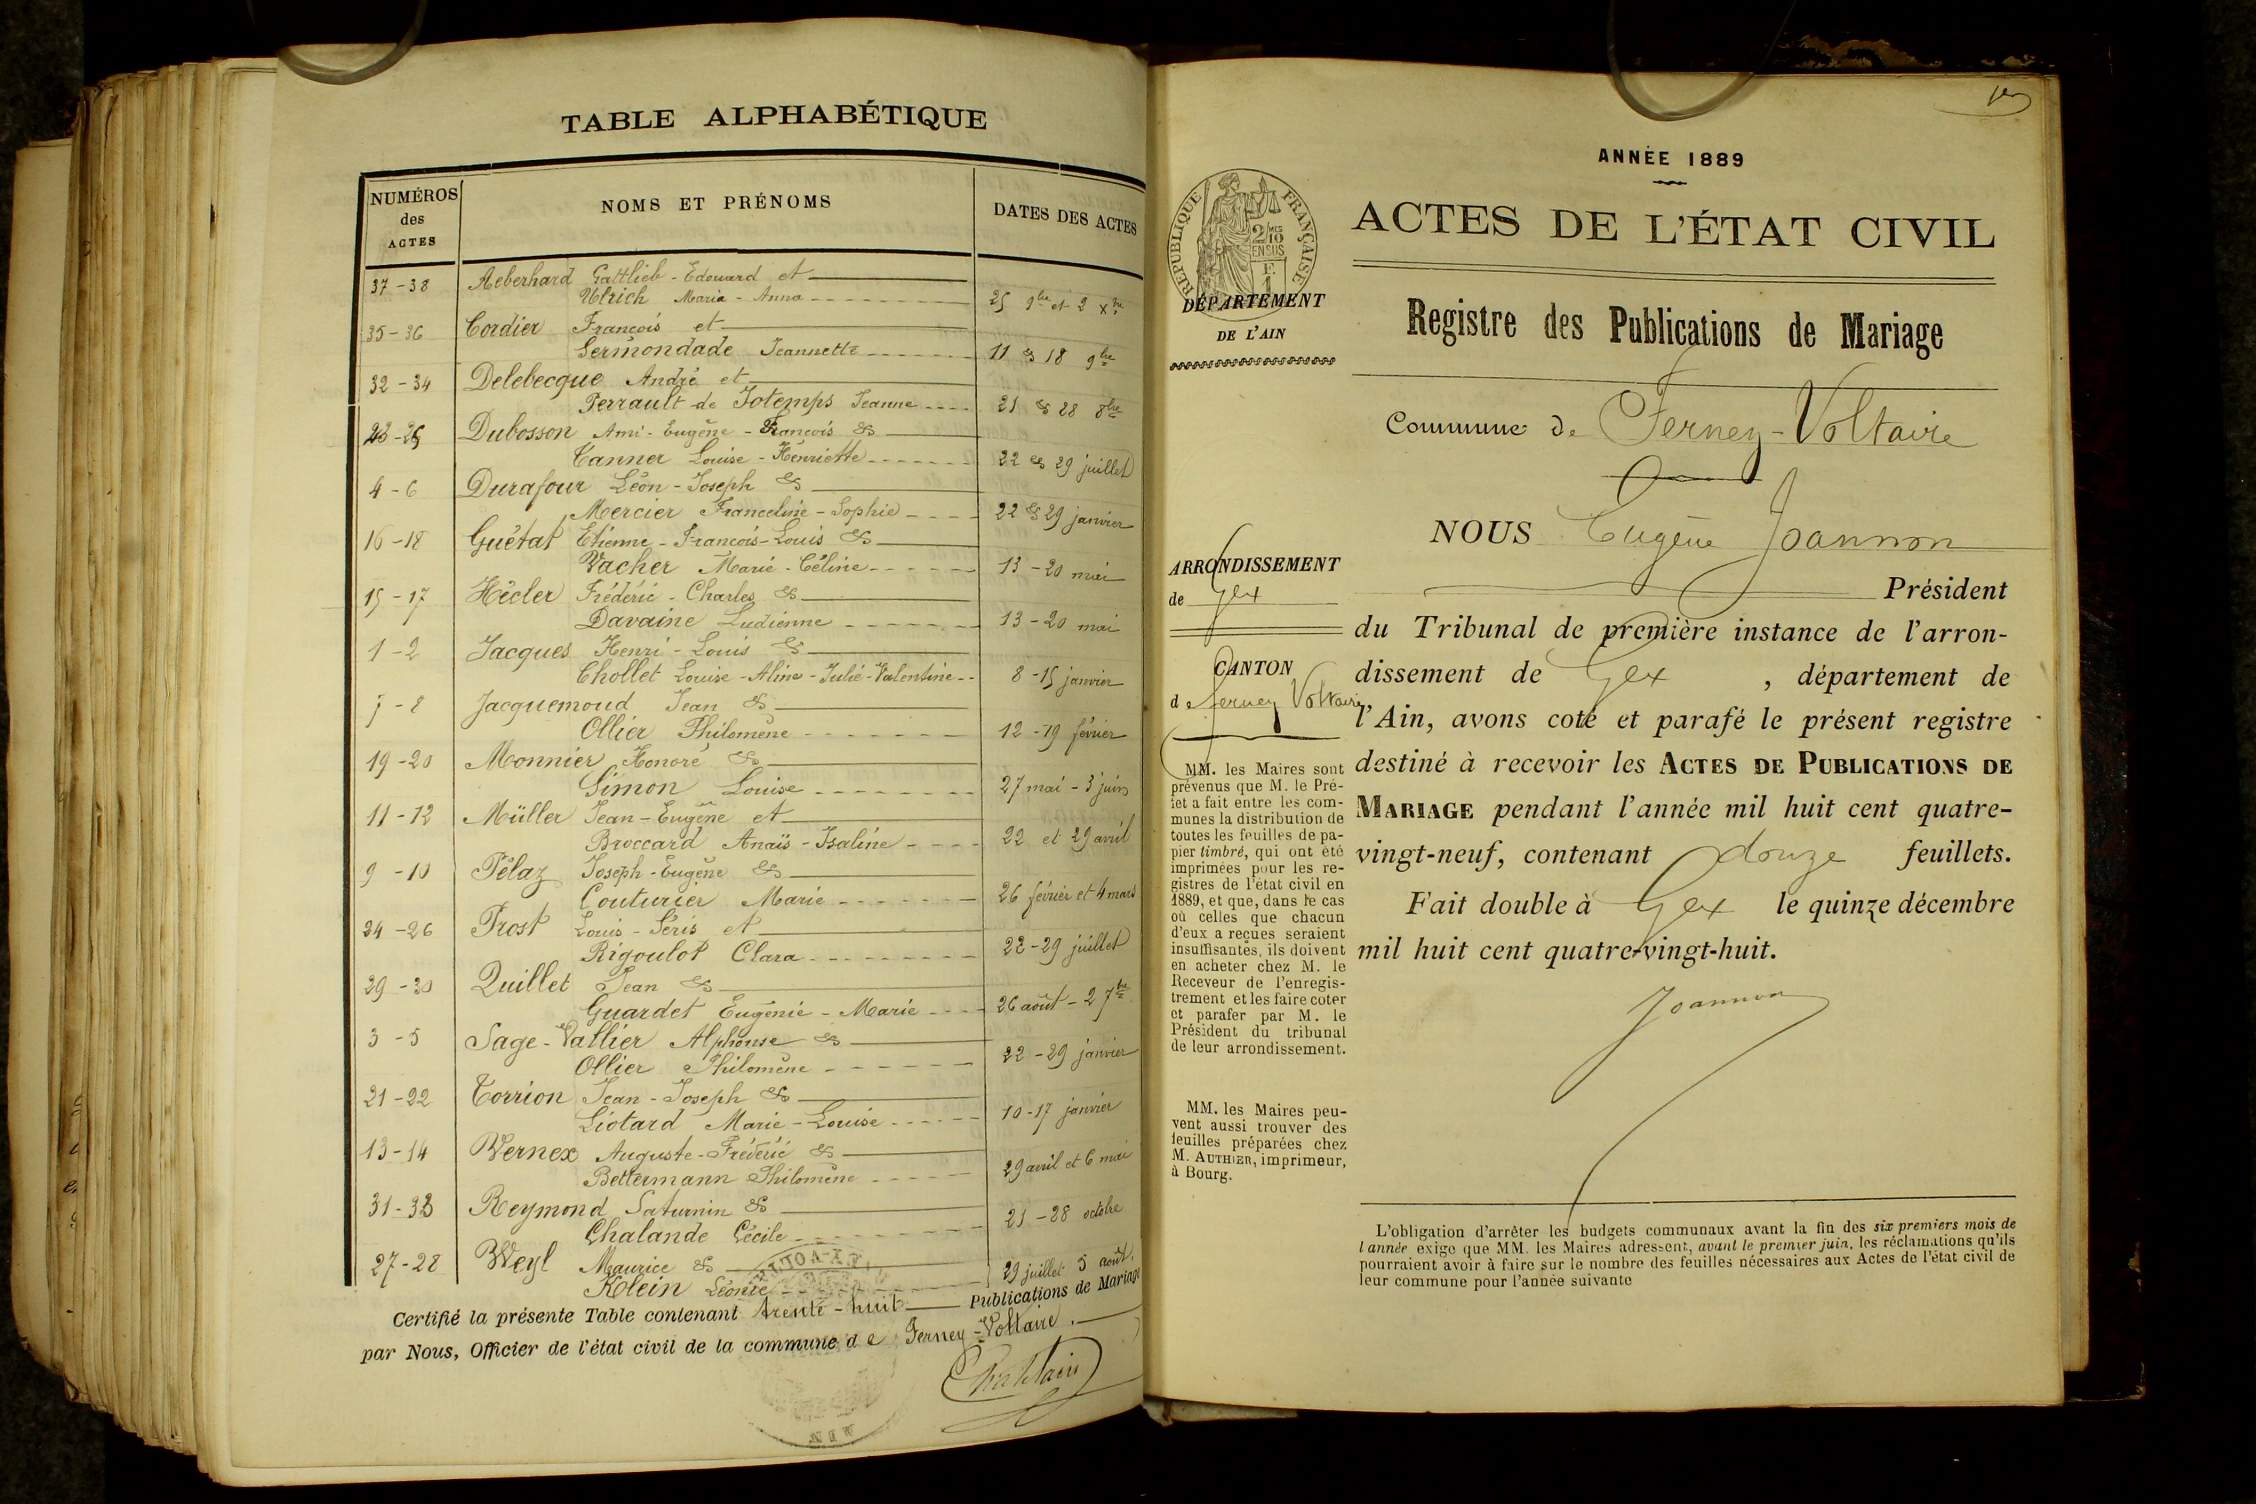 TABLE ALPHABÉTIQUE
NUMÉROS des ACTES
NOMS ET PRÉNOMS
DATES DES ACTES
37-38 Aeberhard Gattlieb-Edouard et
Ulrich Maria-Anna 25 9bre et 2 Xbre
35-36 Cordier François et
Sermondade Jeannette 11 & 18 9bre
32-34 Delebecque André et
Perrault de Jotemps Jeanne 21 & 28 8bre
23-25 Dubosson Ami-Eugène-François &
Tanner Louise-Henriette 22 & 29 juillet
4-6 Durafour Léon-Joseph &
Mercier Franceline-Sophie 22 & 29 janvier
16-18 Guétat Etienne-François-Louis &
Vacher Marie-Céline 13-20 mai
15-17 Hécler Frédéric-Charles &
Davaine Ludienne 13-20 mai
1-2 Jacques Henri-Louis &
Chollet Louise-Aline-Julie-Valentine 8-15 janvier
7-8 Jacquemoud Jean &
Ollier Philomène 12-19 février
19-20 Monnier Honoré &
Simon Louise 27 mai-3 juin
11-12 Müller Jean-Eugène et
Broccard Anaïs-Isaline 22 et 29 avril
9-10 Pélaz Joseph-Eugène &
Couturier Marie 26 février et 4 mars
24-26 Prost Louis-Séris et
Rigoulot Clara 22-29 juillet
29-30 Quillet Jean &
Guardet Eugénie-Marie 26 août-2 7bre
3-5 Sage-Vallier Alphonse &
Ollier Philomène 22-29 janvier
21-22 Torrion Jean-Joseph &
Liotard Marie-Louise 10-17 janvier
13-14 Vernex Auguste-Frédéric &
Bettermann Philomène 29 avril et 6 mai
31-33 Reymond Saturnin &
Chalande Cécile 21-28 octobre
27-28 Weyl Maurice &
Kolein Léonie 29 juillet 5 août.
Certifié la présente Table contenant trente-huit Publications de Mariage
par Nous, Officier de l'état civil de la commune de Ferney-Voltaire.
1er
ANNÉE 1889
ACTES DE L'ÉTAT CIVIL
RÉPUBLIQUE FRANÇAISE
2/10 EN SUS
F. 1
DÉPARTEMENT
DE L'AIN
Registre des Publications de Mariage
Commune de Ferney-Voltaire
ARRONDISSEMENT
de Gex
CANTON
de Ferney Voltaire
MM. les Maires sont
prévenus que M. le Pré-
fet a fait entre les com-
munes la distribution de
toutes les feuilles de pa-
pier timbré, qui ont été
imprimées pour les re-
gistres de l'état civil en
1889, et que, dans le cas
où celles que chacun
d'eux a reçues seraient
insuffisantes, ils doivent
en acheter chez M. le
Receveur de l'enregis-
trement et les faire coter
et parafer par M. le
Président du tribunal
de leur arrondissement.
MM. les Maires peu-
vent aussi trouver des
feuilles préparées chez
M. AUTHIER, imprimeur,
à Bourg.
NOUS Eugène Joannon
Président
du Tribunal de première instance de l'arron-
dissement de Gex, département de
l'Ain, avons coté et parafé le présent registre
destiné à recevoir les ACTES DE PUBLICATIONS DE
MARIAGE pendant l'année mil huit cent quatre-
vingt-neuf, contenant douze feuillets.
Fait double à Gex le quinze décembre
mil huit cent quatre-vingt-huit.
Joannon
L'obligation d'arrêter les budgets communaux avant la fin des six premiers mois de
l'année exige que MM. les Maires adressent, avant le premier juin, les réclamations qu'ils
pourraient avoir à faire sur le nombre des feuilles nécessaires aux Actes de l'état civil de
leur commune pour l'année suivante